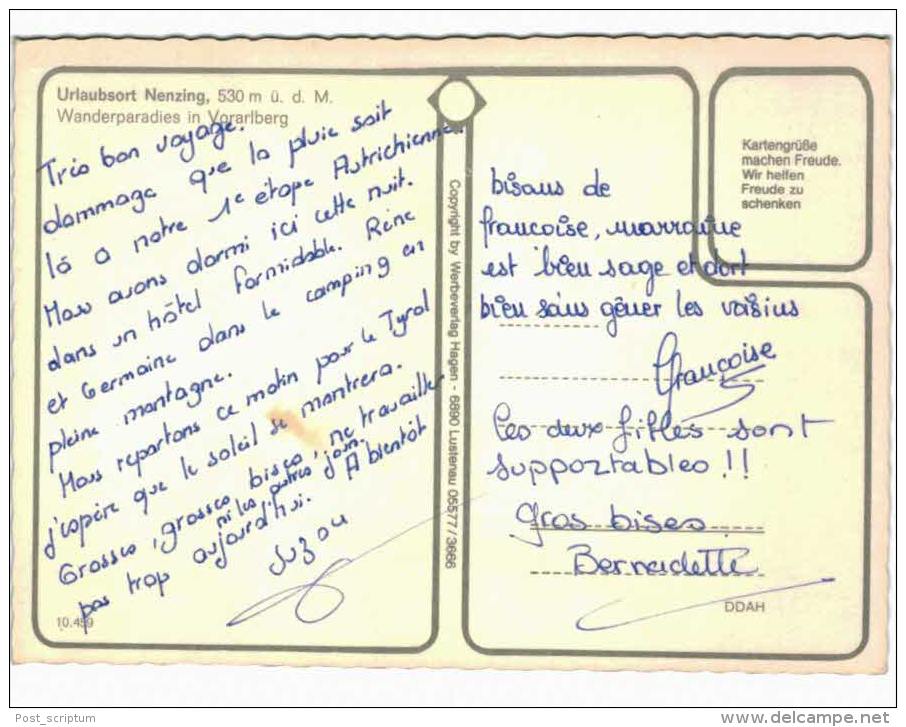 Urlaubsort Nenzing, 530 m ü. d. M.
Wanderparadies in Vorarlberg
Très bon voyage.
dommage que la pluie soit
là à notre 1e étape Autrichienne.
Nous avons dormi ici cette nuit.
dans un hôtel formidable. Réné
et Germaine dans le camping en
pleine montagne.
Nous repartons ce matin pour le Tyrol
j'espère que le soleil se montrera.
Grosses, grosses bises, ne travailler
pas trop aujourd'hui. A bientôt
ni les autres jours.
Suzou
10.459
Copyright by Werbeverlag Hagen - 6890 Lustenau 05577/3666
Kartengrüße
machen Freude.
Wir helfen
Freude zu
schenken
bisous de
françoise, marraine
est bien sage et dort
bien sans gêner les voisins
Françoise
les deux filles sont
supportables!!
gros bises
Bernadette
DDAH
Post_scriptum
www.delcampe.net